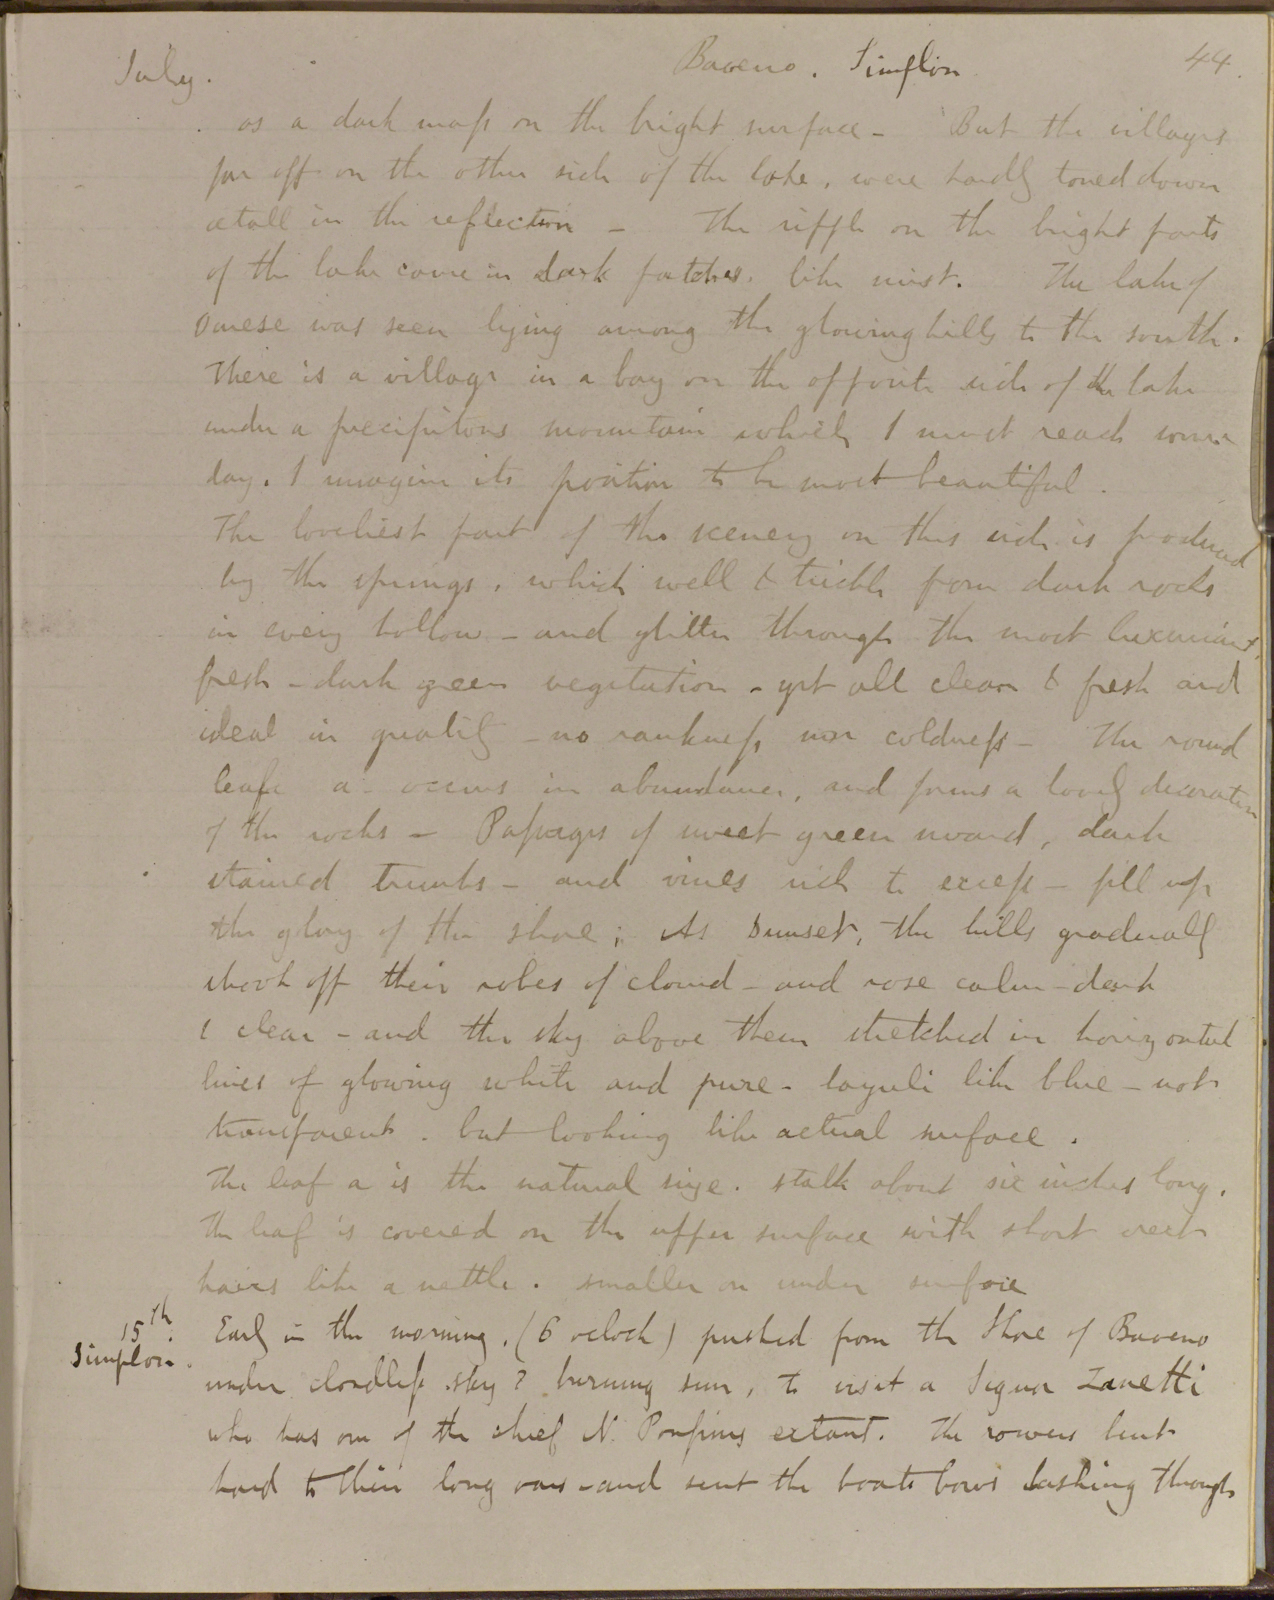 July.
Baveno. Simplon
44.
as a dark mass on the bright surface - But the villages
far off on the other side of the lake, were hardly toned down
atall in the reflection - The riffle on the bright parts
of the lake came in dark patches. like mist. The lake of
Varese was seen lying among the glowing hills to the south.
There is a village in a bay on the opposite side of the lake
under a precipitous mountain which I must reach some
day. I imagine its position to be most beautiful.
The loveliest part of the scenery on this side is produced
by the springs, which well & trickle from dark rocks
in every hollow - and glitter through the most luxuriant,
fresh - dark green vegetation - yet all clean & fresh and
ideal in quality - no rankness, nor coldness - The round
leaf a occurs in abundance, and forms a lovely decoration
of the rocks - Passages of sweet green sward, dark
stained trunks - and vines rich to excess - fill up
the glory of the shore; At Sunset, the hills gradually
shook off their robes of cloud - and rose calm - dark
& clear - and the sky above them stretched in horizontal
lines of glowing white and pure - lazuli like blue - not
transparent. but looking like actual surface.
The leaf a is the natural size. stalk about six inches long.
The leaf is covered on the upper surface with short erect
hairs like a nettle. smaller on under surface
15th. Simplon.
Early in the morning, (6 oclock) pushed from the Shore of Baveno
under cloudless sky & burning sun, to visit a Signor Zanetti
who has one of the chief N. Poussins extant. The rowers bent
hard to their long oars - and sent the boats bows dashing through